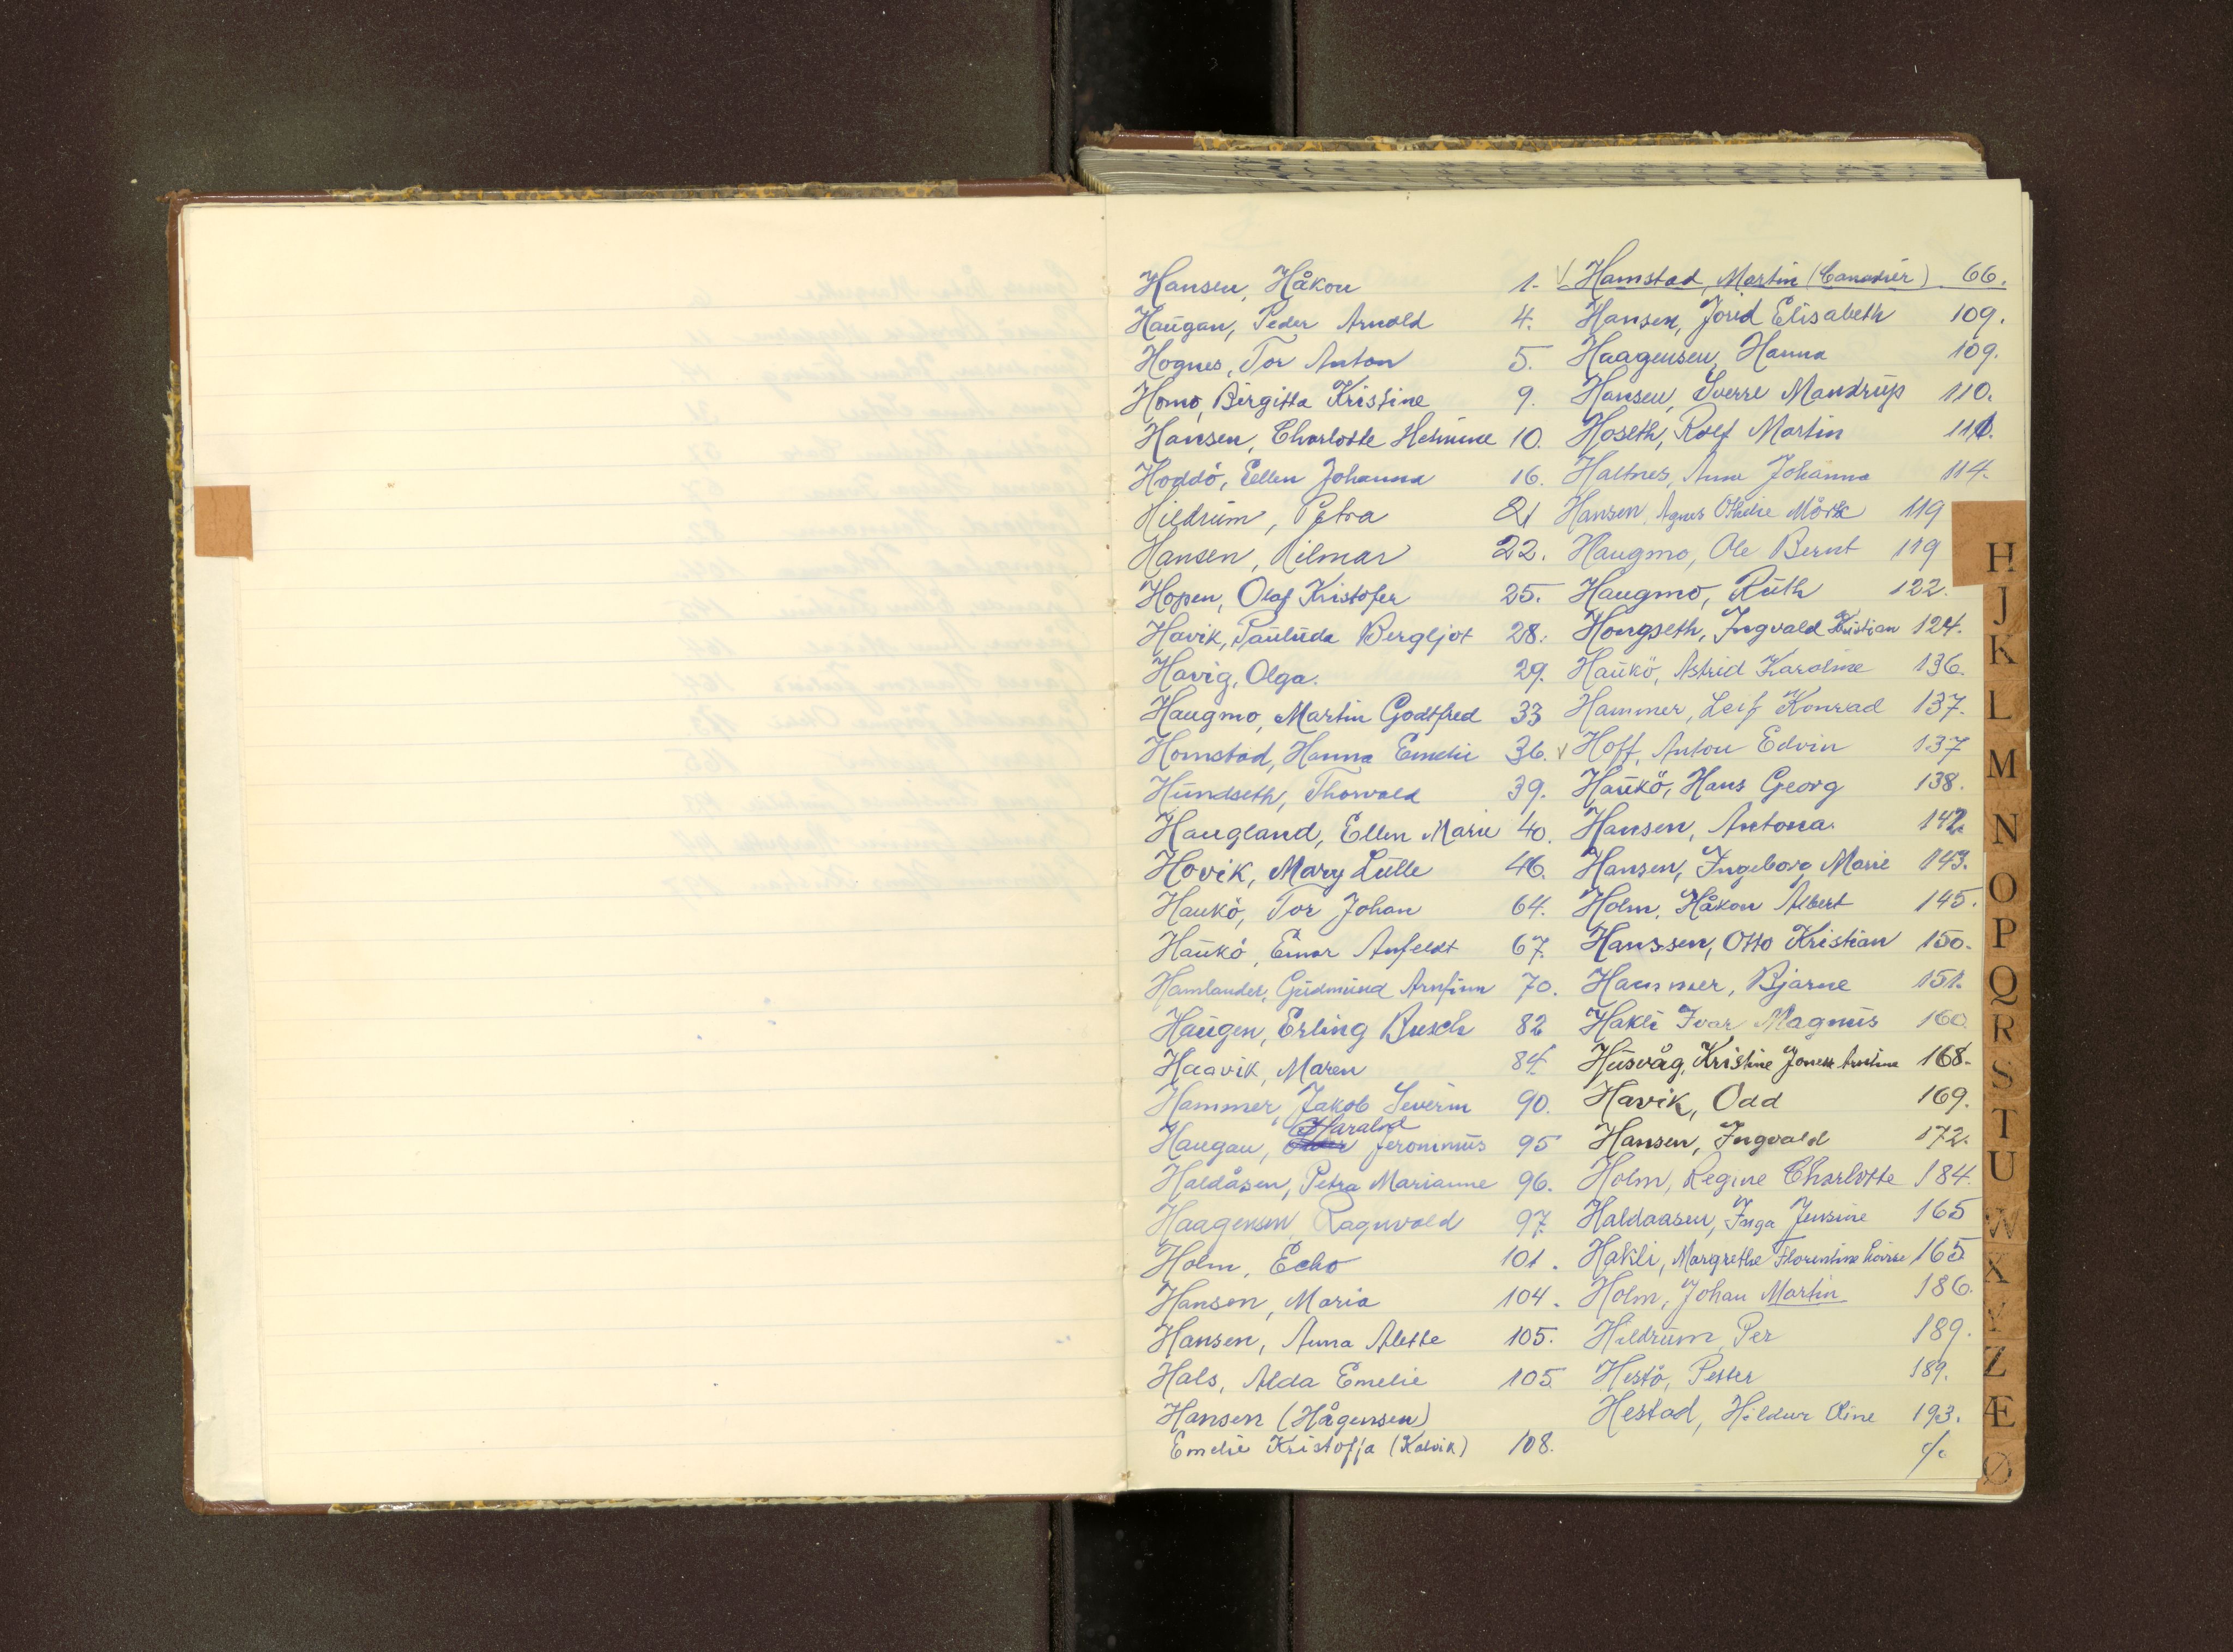 Hansen, Håkon 1.
Haugan, Peder Arnold 4.
Hognes, Tor Anton 5.
Homo, Birgitta Kristine 9.
Hansen, Charlotte Helmine 10.
Hoddö, Ellen Johanna 16.
Hildrum, Petra 21
Hansen, Hilmar 22.
Hopen, Olaf Kristofer 25.
Havik, Paulida Bergljot 28.
Havig, Olga. 29.
Haugmo, Martin Godtfred 33
Homstad, Hanna Emelie 36.
Hundseth, Thorvald 39.
Haugland, Ellen Marie 40.
Hovik, Mary Lulle 46.
Haukö, Tor Johan 64.
Haukö, Einar Anfeldt 67.
Hamlander, Gudmund Arnfinn 70.
Haugen, Erling Busch 82
Haavik, Maren 84.
Hammer, Jakob Severin 90.
Haugan, Harald Jeronimus 95
Haldåsen, Petra Marianne 96.
Haagensen, Ragnvald 97.
Holm, Echo 101.
Hansen, Maria 104.
Hansen, Anna Alette 105.
Hals, Alda Emelie 105.
Hansen (Hågensen)
Emelie Kristoffa (Kalvik) 108.
√ Hamstad, Martin (Canadier) 66.
Hansen, Jorid Elisabeth 109.
Haagensen, Hanna 109.
Hansen, Sverre Mandrup 110.
Hoseth, Rolf Martin 111.
Haltnes, Anna Johanna 114.
Hansen, Agnes Othelie Mörk 119
Haugmo, Ole Bernt 119
Haugmo, Ruth 122.
Hongseth, Ingvald Kristian 124.
Haukö, Astrid Karoline 136.
Hammer, Leif Konrad 137.
√ Hoff, Anton Edvin 137
Haukö, Hans Georg 138.
Hansen, Antona. 142.
Hansen, Ingeborg Marie 143.
Holm, Håkon Albert 145.
Hanssen, Otto Kristian 150.
Hammer, Bjarne 151.
Hakli Ivar Magnus 160.
Husvåg, Kristine Jonette 168.
Havik, Odd 169.
Hansen, Ingvald 172.
Holm, Regine Charlotte 184.
Haldaasen, Inga Jensine 165
Hakli, Margrethe Florentine Lovise 165
Holm, Johan Martin 186.
Hildrum, Per 189.
Hestö, Petter 189.
Hestad, Hildur Oline 193.
%
H
J
K
L
M
N
O
P
Q
R
S
T
U
W
X
Y
Z
Æ
Ø